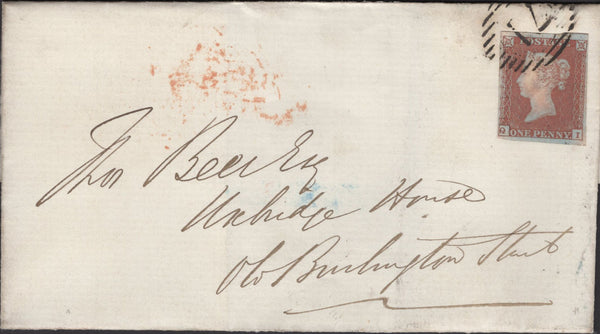 POSTAGE
Q I
ONE PENNY
Thos Beer Esq
Uxbridge House
Old Burlington Street